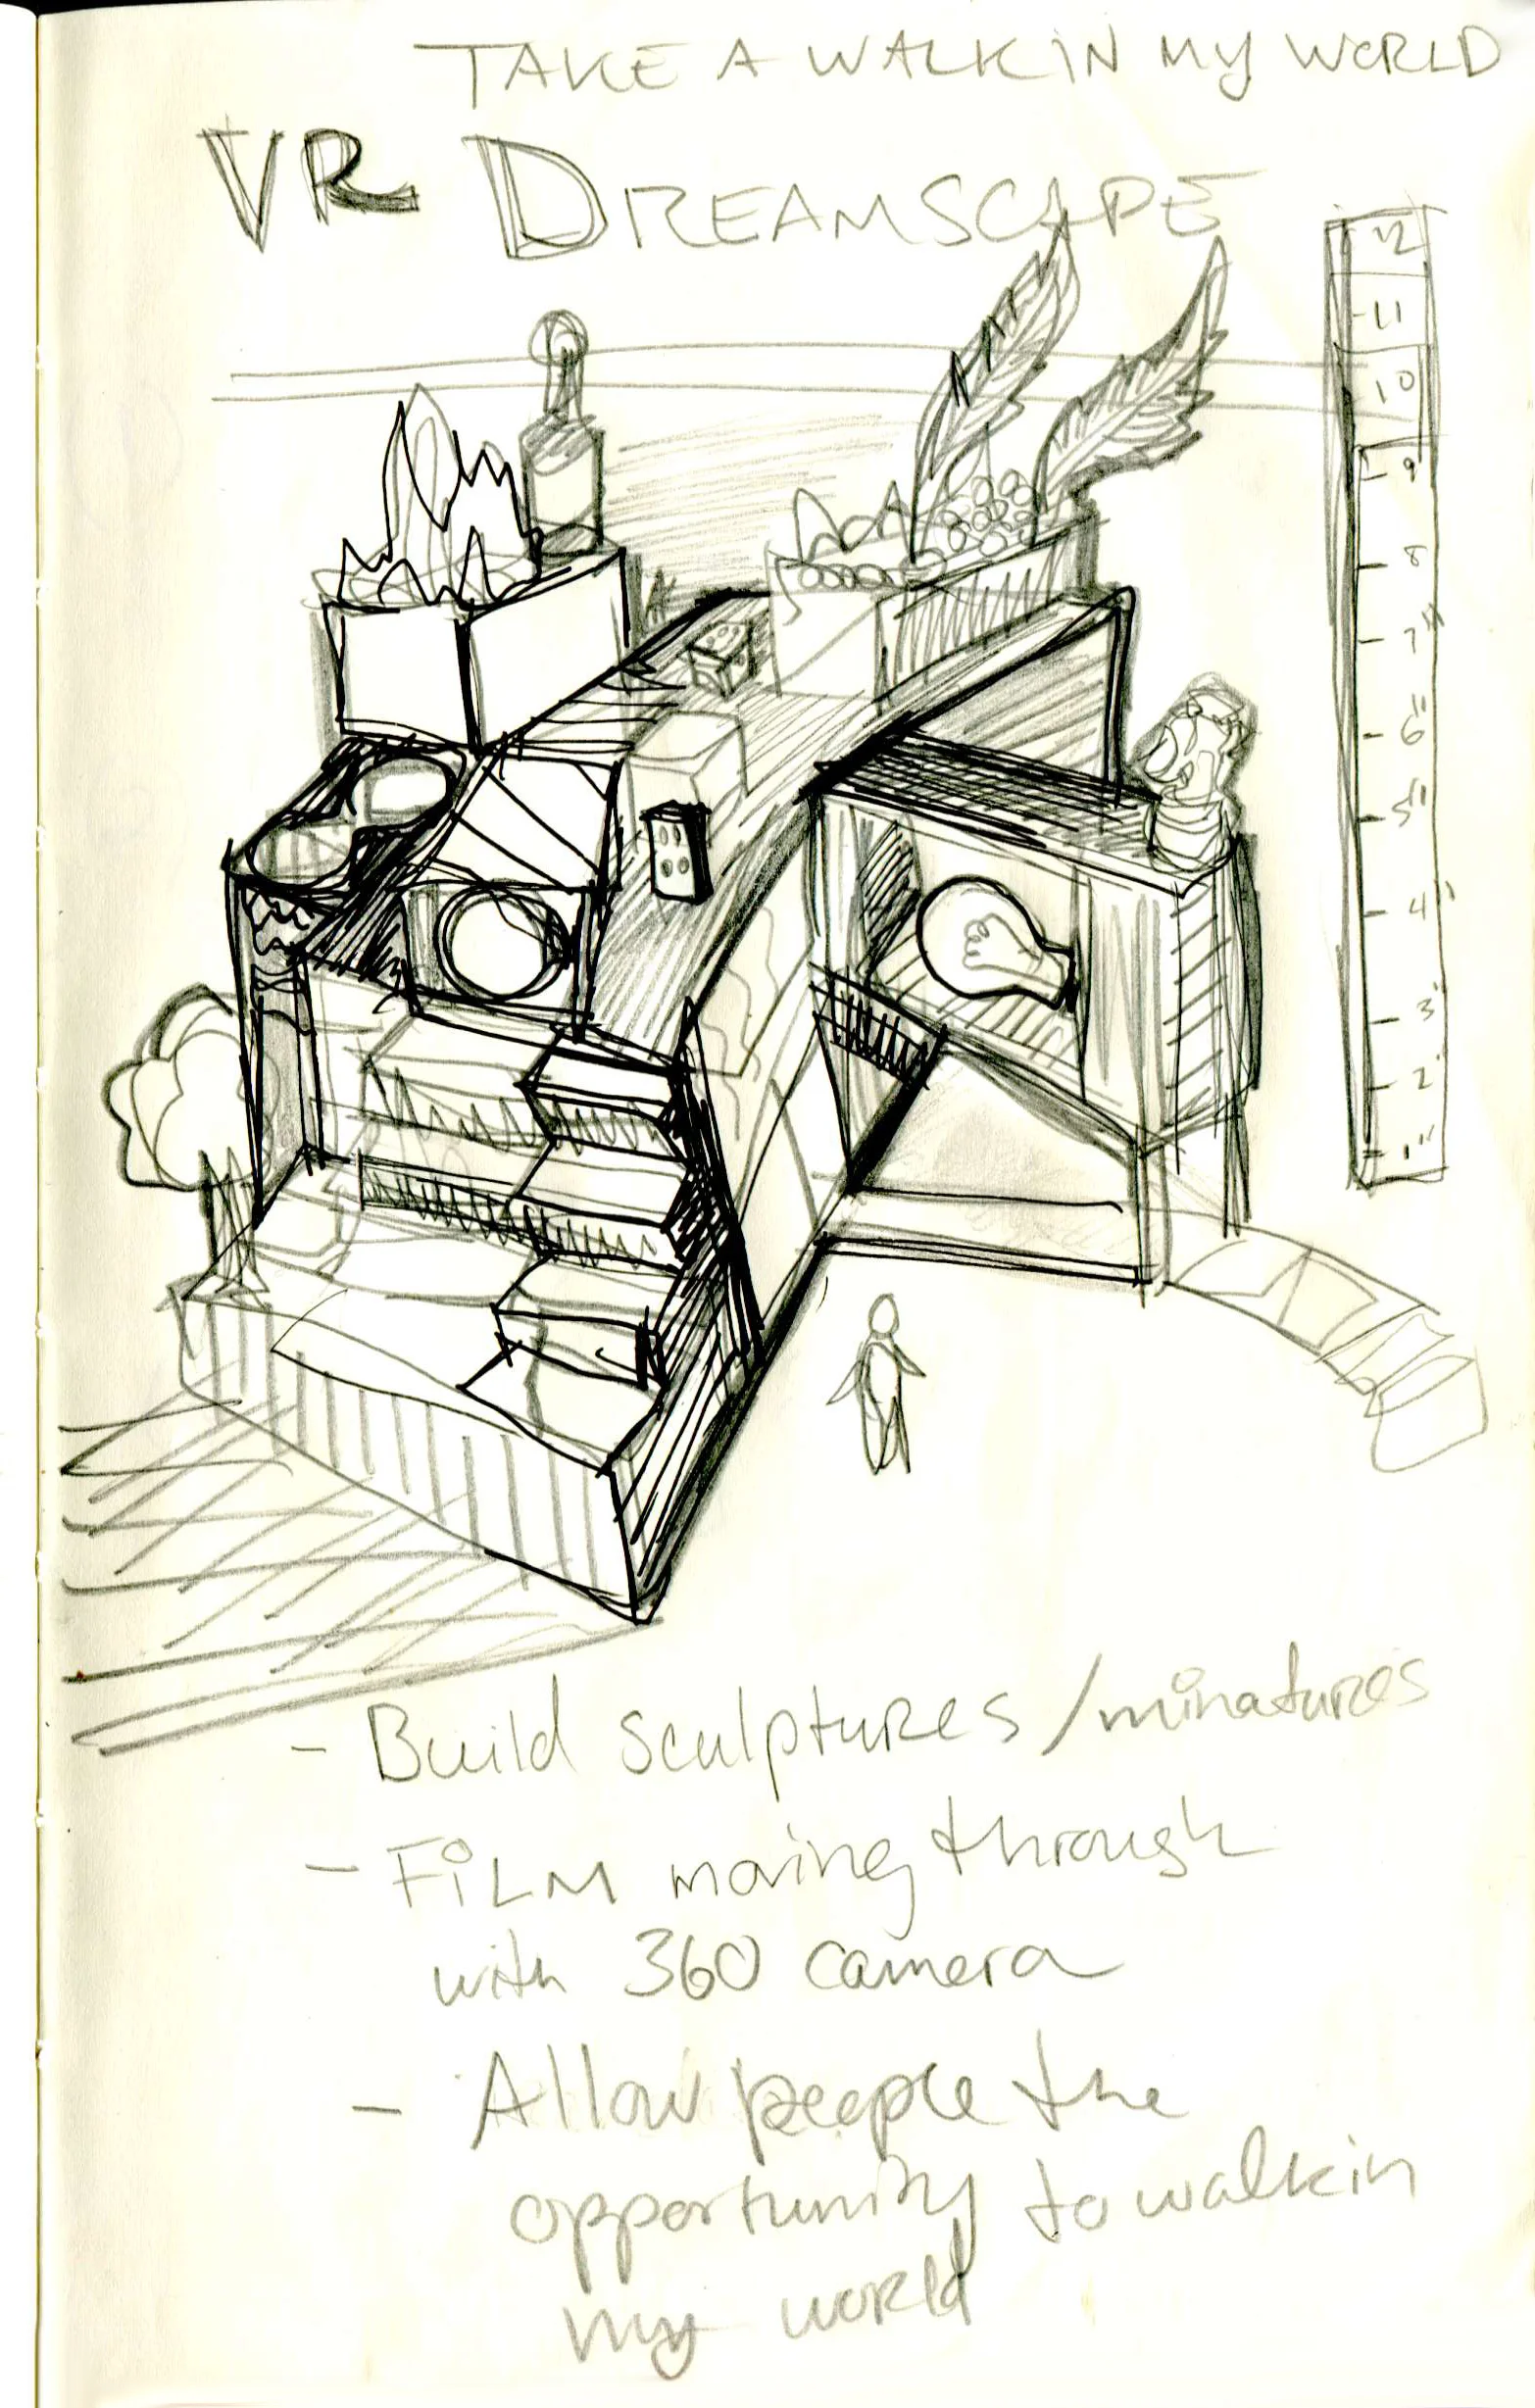 TAKE A WALK IN MY WORLD
VR DREAMSCAPE
12
11
10
9
8
7"
6"
5"
4'
3'
2'
1"
- Build sculptures/minatures
- FiLM moving through
with 360 camera
- Allow people the
opportunity to walk in
my world